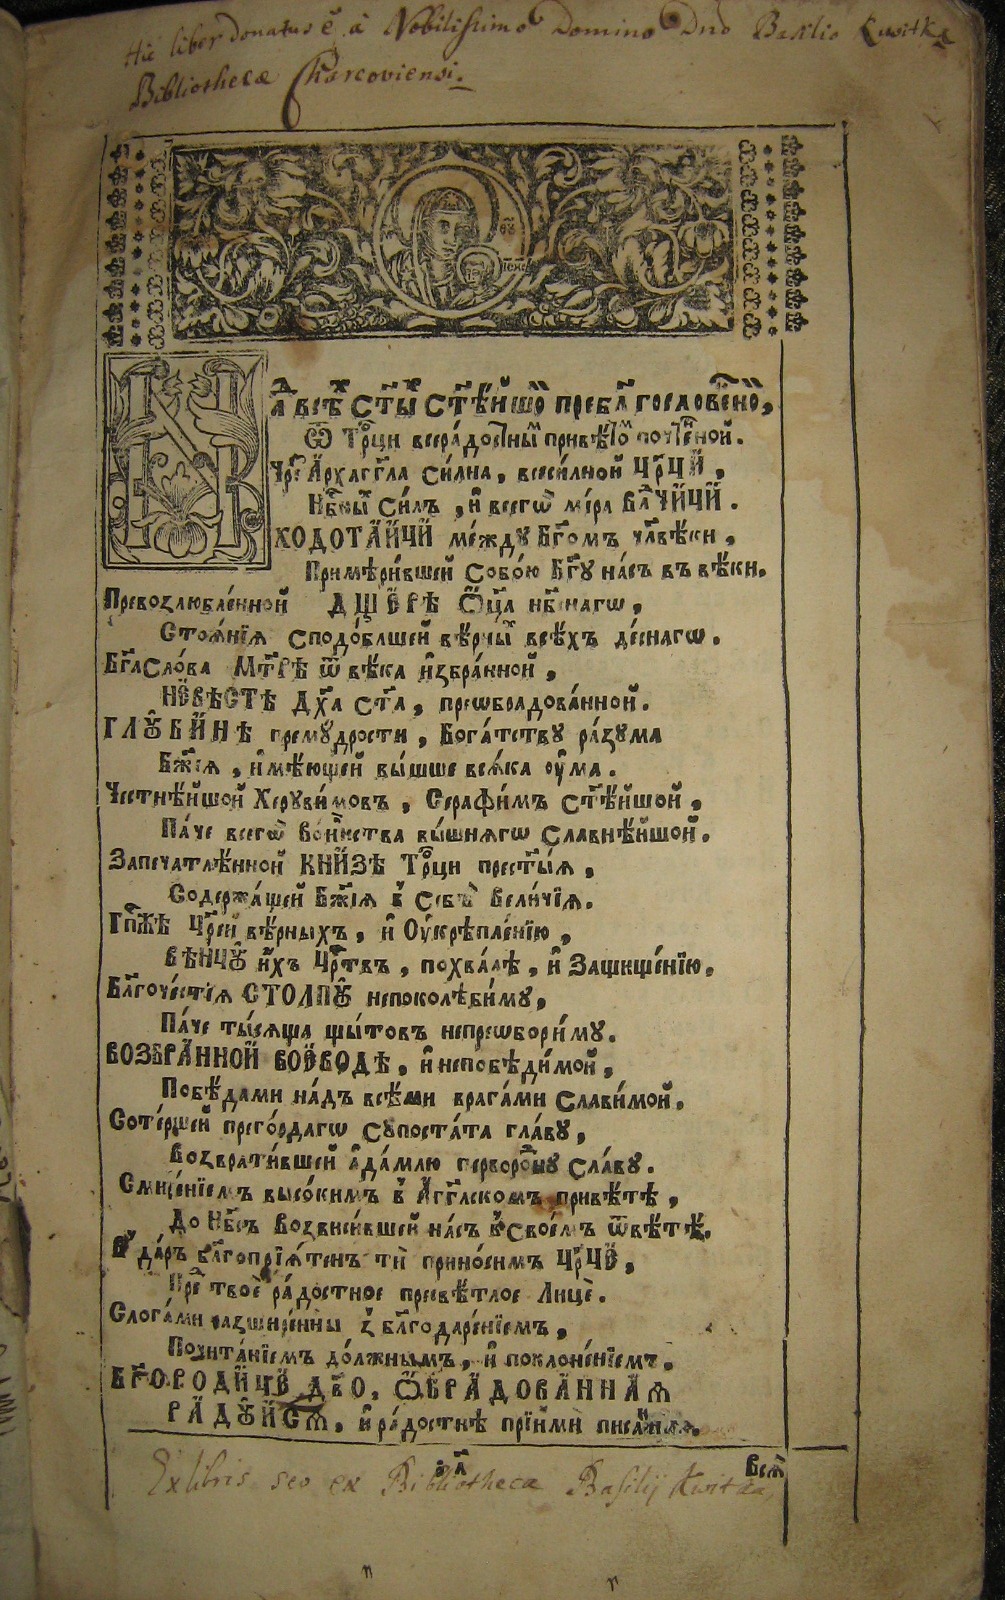 Hic liber donatus ē à Nobilissimo Domino Dno Basilio Kwitka
Bibliothecæ Charcoviensi.
ІС ХС
Н
А҃ всѣ́хъ Ст҃ы́хъ Ст҃ѣ́йшой пребл҃гословенной,
Ѿ Трⷪ҇ци всера́достнымъ привѣ́томъ почте́нной.
Чреⷥ А҆рха́гг҃ла си́лна, всеси́лной Цр҃ци,
Нбⷭ҇ныхъ Си́лъ, и҆ всегѡ̀ ми́ра Влⷣчи́ци.
ХОДОТА́ИЦИ ме́жду Бг҃омъ чл҃вѣ́ки,
Примѣри́вшей Собо́ю Бг҃у на́съ въ вѣ́ки.
Превозлюбле́нной ДЩЕ́РѢ Ѻ҆ц҃а нбⷭ҇нагѡ,
Стоѧ́нїѧ сподо́блшей вѣ́рныхъ всѣ́хъ десна́гѡ.
Бг҃а Сло́ва Мт҃РѢ ѿ вѣ́ка и҆збра́нной,
НЕВѢ́СТѢ Дх҃а ст҃а, преѡбрадова́нной.
ГЛꙊБИ́НѢ прему́дрости, Бога́тству ра́зума
Бж҃їѧ, и҆мѣ́ющей вы́шше всѧ́ка оу҆ма̀.
Честнѣ́йшой Херуви́мовъ, Серафі́мъ ст҃ѣ́йшой,
Па́че всегѡ̀ во́инства вы́шнѧгѡ Славнѣ́йшой.
Запечатлѣ́нной КНИ́ЗѢ Трⷪ҇ци прест҃ы́ѧ,
Содержа́щей Бж҃їѧ в̾ себѣ̀ вели́чїѧ.
Гпⷭ҇жѣ̀ Цр҃ей вѣ́рныхъ, и҆ Оу҆крѣпле́нїю,
ВѢНЦꙊ̀ и҆́хъ Црⷭ҇твъ, похва́лѣ, и҆ Защище́нїю.
Бл҃гоче́стїѧ СТОЛПꙊ̀ непоколѣби́му,
Па́че ты́сѧща щы́товъ непреѡбори́му.
ВОЗБРА́ННОЙ ВОЕВОДѢ, и҆ непобѣди́мой,
Побѣ́дами на́дъ всѣ́ми врага́ми Слави́мой.
Соте́ршей прего́рдагѡ супоста́та гла́ву,
Возврати́вшей а҆да́млю перворо́дну сла́ву.
Смире́нїемъ высо́кимъ в̾ А҆́гг҃лскомъ привѣ́тѣ,
До Нб҃съ Возвиси́вшей на́съ в̾ своéмъ ѿвѣ́тѣ.
В̾ да́ръ бл҃гопрїѧ́тенъ тѝ прино́симъ Цр҃Це,
Преⷣ твоѐ ра́достное пресвѣ́тлое Лицѐ.
Слога́ми разшире́нны з̾ бл҃годаре́нїемъ,
Почита́нїемъ до́лжнымъ, и҆ поклоне́нїемъ.
БГ҃ОРО́ДИЦЕ ДВ҃О, Ѻ҆БРА́ДОВАННАѦ
РА́ДꙊЙСѦ, и҆ ра́достнѣ прїимѝ писа̑ннаѧ.
Всѧ̀
Ex libris seo ex Bibliotheca Basilij Kwitka,